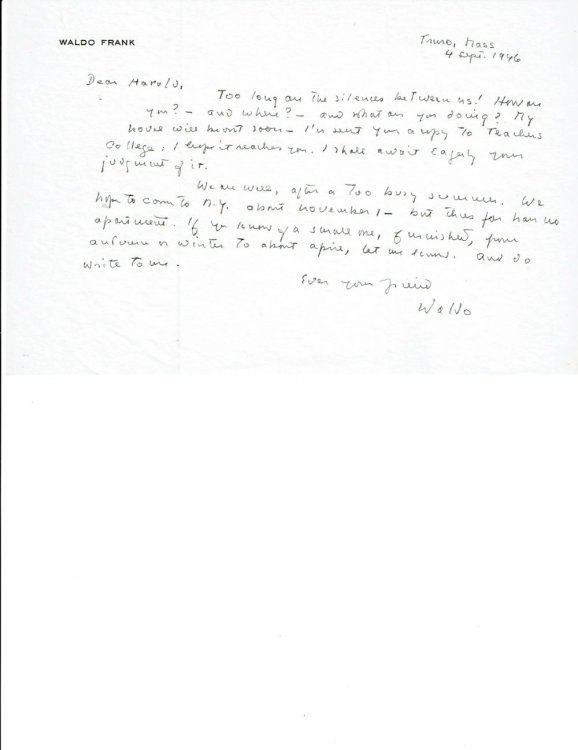 WALDO FRANK
Truro, Mass
4 Sept. 1946
Dear Harold,
Too long are the silences between us! How are
you? – and where? – and what are you doing? My
novel will be out soon – I've sent you a copy to Teachers
College. I hope it reaches you. I shall await eagerly your
judgment of it.
We are well, after a too busy summer. We
hope to come to N.Y. about November 1 – but thus far have no
apartment. If you know of a small one, furnished, from
autumn or winter to about April, let me know. And do
write to me.
Ever your friend
Waldo